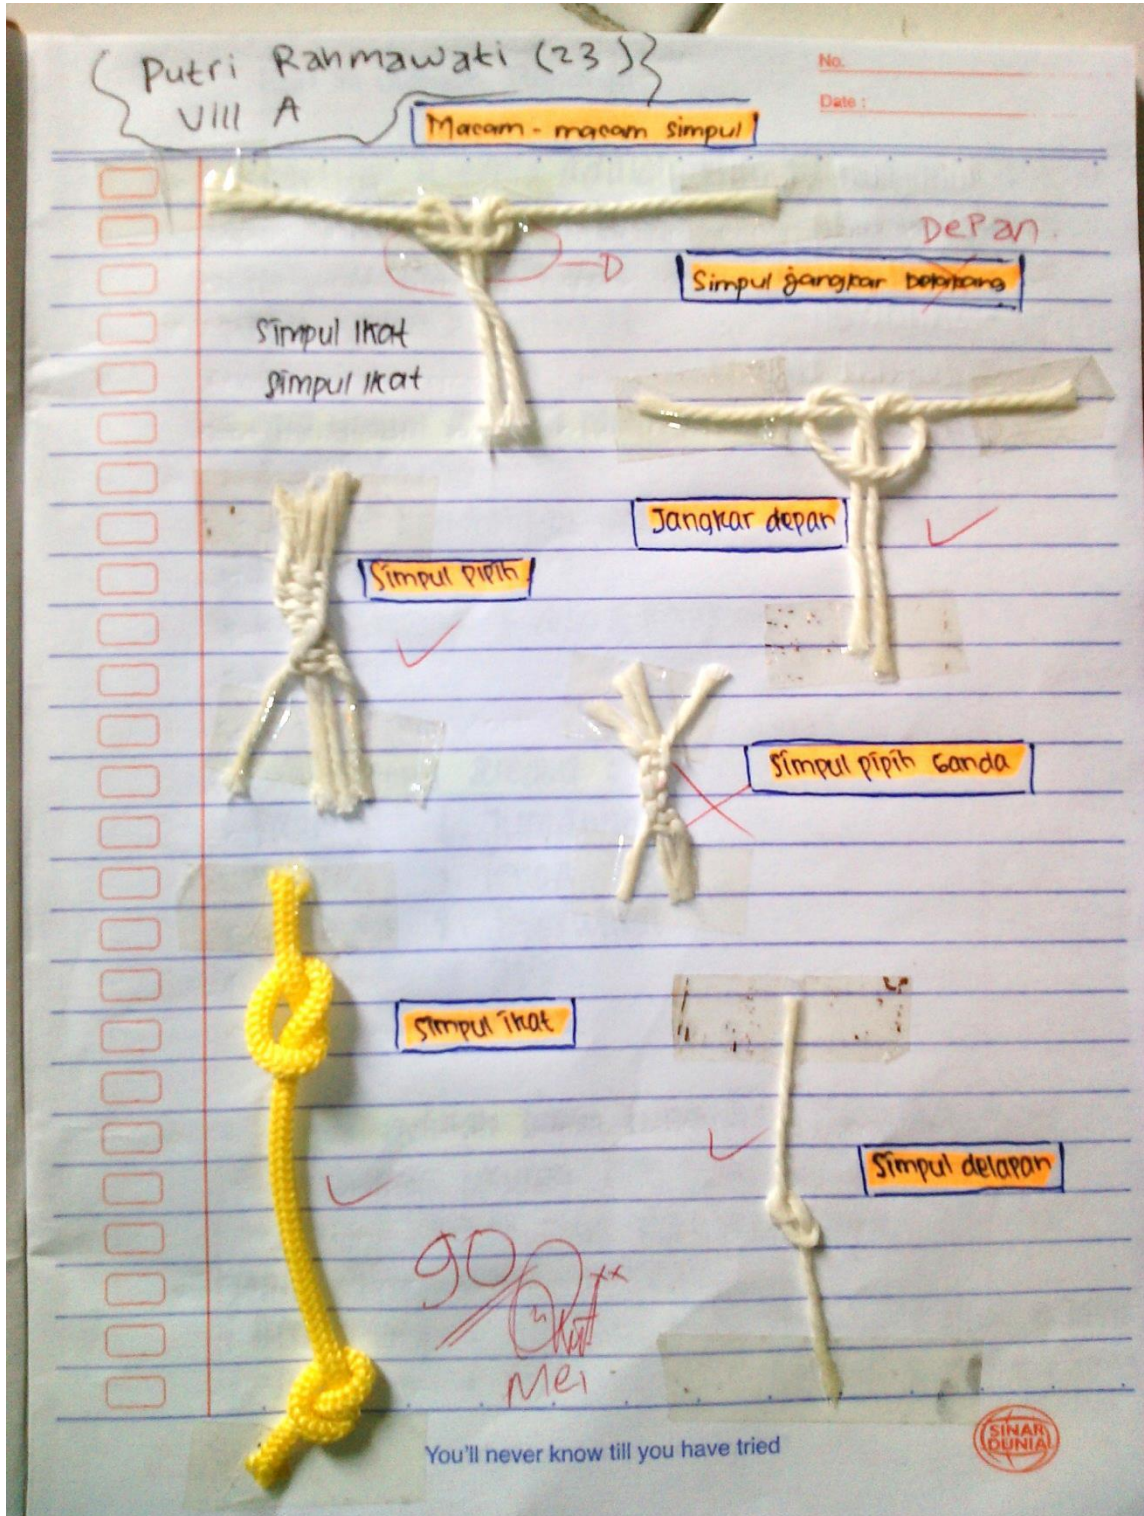 Putri Rahmawati (23)
VIII A
No.
Date :
Macam - macam simpul
DePan
Simpul jangkar belakang
D
Simpul Ikat
Simpul Ikat
Jangkar depan
Simpul pipih
Simpul pipih Ganda
Simpul ikat
Simpul delapan
90
Mei
You'll never know till you have tried
SINAR
DUNIA